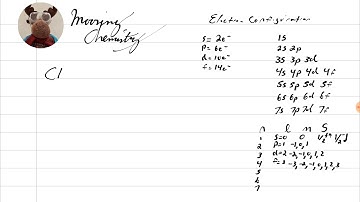 Moosing
Chemistry
Cl
Electron Configuration
s = 2e⁻ 1s
p = 6e⁻ 2s 2p
d = 10e⁻ 3s 3p 3d
f = 14e⁻ 4s 4p 4d 4f
5s 5p 5d 5f
6s 6p 6d 6f
7s 7p 7d 7f
n l m s
1 s=0 0
2 p=1 -1,0,1
3 d=2 -2,-1,0,1,2
4 f=3 -3,-2,-1,0,1,2,3
5
6
7